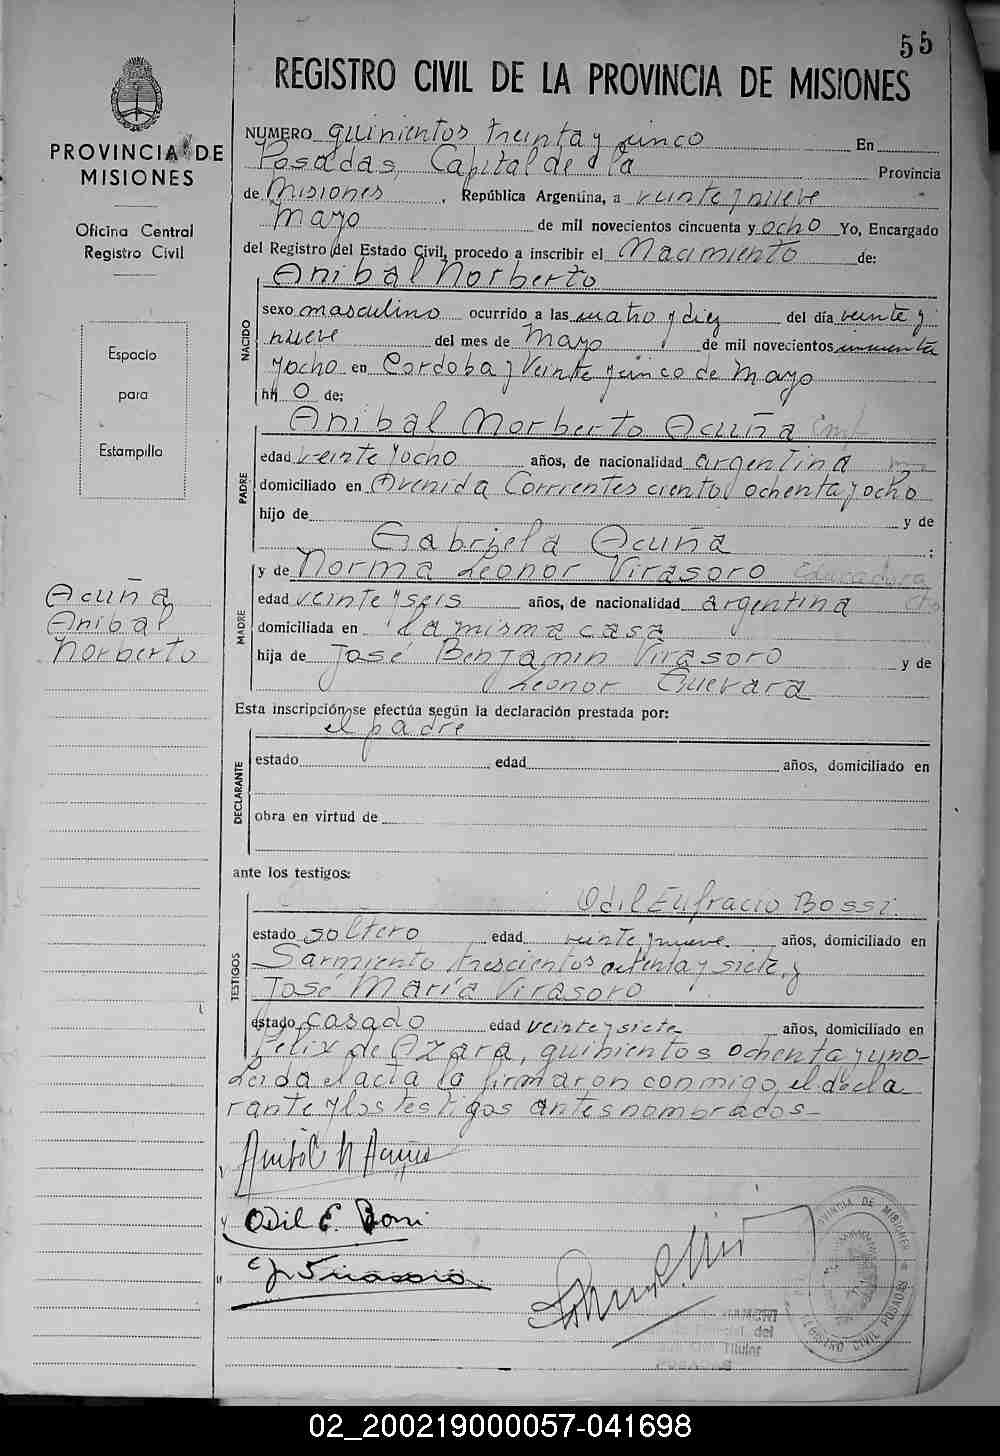 55
REGISTRO CIVIL DE LA PROVINCIA DE MISIONES
PROVINCIA DE
MISIONES
Oficina Central
Registro Civil
Espacio
para
Estampilla
Acuña
Anibal
Norberto
NUMERO quinientos treinta y cinco En
Posadas, Capital de la Provincia
de Misiones, República Argentina, a veinte y nueve
Mayo de mil novecientos cincuenta y ocho Yo, Encargado
del Registro del Estado Civil, procedo a inscribir el Nacimiento de:
Anibal Norberto
NACIDO
sexo masculino ocurrido a las cuatro y diez del día veinte y
nueve del mes de Mayo de mil novecientos cincuenta
y ocho en Cordoba y Veinte y cinco de Mayo
hij o de:
Anibal Norberto Acuña
PADRE
edad veinte y ocho años, de nacionalidad argentina
domiciliado en Avenida Corrientes ciento ochenta y ocho
hijo de y de
Gabriela Acuña ;
y de Norma Leonor Virasoro
MADRE
edad veinte y seis años, de nacionalidad argentina
domiciliada en la misma casa
hija de José Benjamin Virasoro y de
Leonor Guevara
Esta inscripción se efectúa según la declaración prestada por:
el padre
DECLARANTE
estado edad años, domiciliado en
obra en virtud de
ante los testigos:
Odil Eufracio Bossi
TESTIGOS
estado soltero edad veinte y nueve años, domiciliado en
Sarmiento trescientos ochenta y siete, y
José María Virasoro
estado casado edad veinte y siete años, domiciliado en
Felix de Azara, quinientos ochenta y uno-
Leida el acta la firmaron conmigo, el decla
rante y los testigos antes nombrados-
Anibal N Acuña
Odil E. Bossi
J Virasoro
PROVINCIA DE MISIONES
REGISTRO CIVIL POSADAS
Titular
02_200219000057-041698